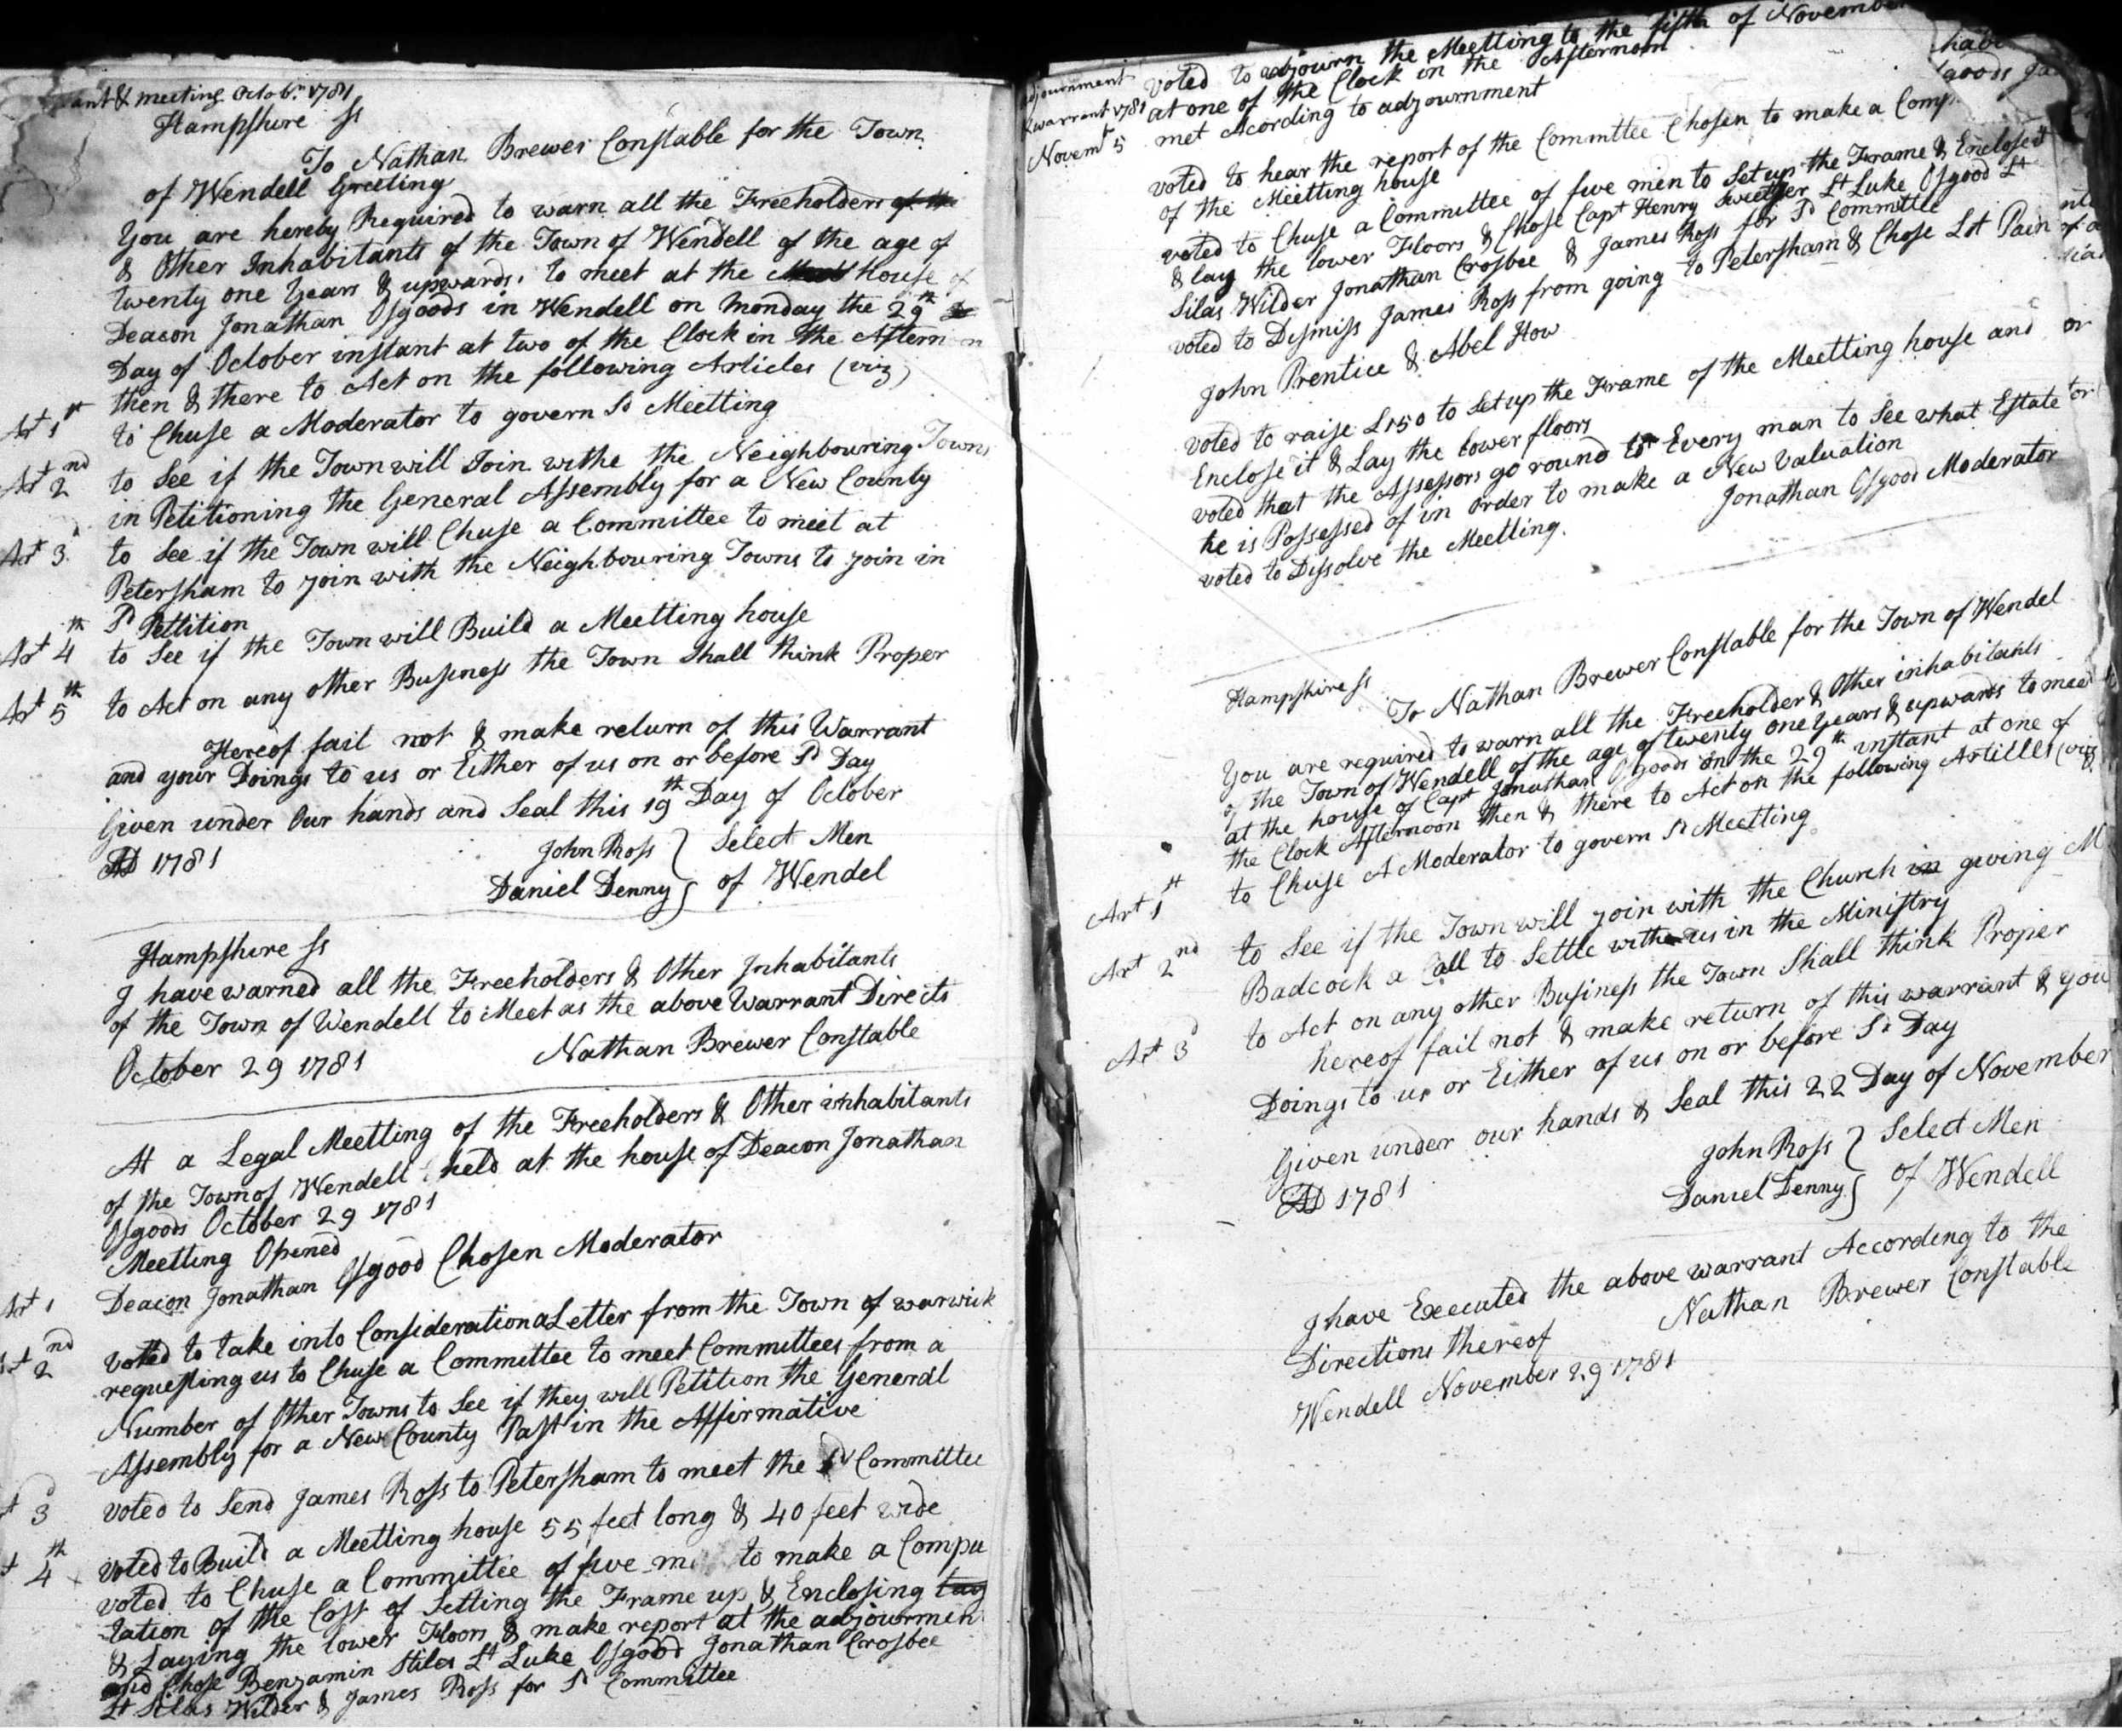 ant & meeting Octobr 1781
Hampshire Ss
To Nathan Brewer Constable for the Town
of Wendell Greeting
You are hereby Required to warn all the Freeholders of the
& Other Inhabitants of the Town of Wendell of the age of
twenty one Years & upwards, to meet at the house of
Deacon Jonathan Osgoods in Wendell on Monday the 29th
Day of October instant at two of the Clock in the Afternoon
then & there to Act on the following Articles (viz)
Art 1st to Chuse a Moderator to govern Sd Meetting
Art 2nd to See if the Town will Join withe the Neighbouring Towns
in Petitioning the General Assembly for a New County
Art 3d to See if the Town will Chuse a Committee to meet at
Petersham to join with the Neighbouring Towns to join in
Sd Pettition
Art 4th to See if the Town will Build a Meetting house
Art 5th to Act on any other Business the Town Shall think Proper
Hereof fail not & make return of this Warrant
and your Doings to us or Either of us on or before Sd Day
Given under Our hands and Seal this 19th Day of October
AD 1781 John Ross } Select Men
Daniel Denny } of Wendel
Hampshire Ss
I have warned all the Freeholders & Other Inhabitants
of the Town of Wendell to Meet as the above Warrant Directs
October 29 1781 Nathan Brewer Constable
At a Legal Meetting of the Freeholders & Other inhabitants
of the Town of Wendell held at the house of Deacon Jonathan
Osgoods October 29 1781
Meetting Opened
Art 1 Deacon Jonathan Osgood Chosen Moderator
2nd voted to take into Consideration a Letter from the Town of warwick
requesting us to Chuse a Committee to meet Committees from a
Number of Other Towns to See if they will Petition the General
Assembly for a New County Past in the Affirmative
3d voted to Send James Ross to Petersham to meet the Sd Committee
4th voted to Build a Meetting house 55 feet long & 40 feet wide
voted to Chuse a Committee of five to make a Compu
tation of the Cost of Setting the Frame up & Enclosing lay
& Laying the lower Floors & make report at the adjournment
and Chose Benjamin Stiles Lt Luke Osgood Jonathan Crosbee
Lt Silas Wilder & James Ross for Sd Committee
adjournment voted to adjourn the Meetting to the fifth of November
& warrant 1781 at one of the Clock in the Afternoon
Novemr 5 met Acording to adjournment
voted to hear the report of the Committee Chosen to make a Comp
of the Meetting house
voted to Chuse a Committee of five men to Set up the Frame & Enclose it
& lay the lower Floors & Chose Capt Henry Sweetser Lt Luke Osgood Lt
Silas Wilder Jonathan Crosbee & James Ross for Sd Committe
voted to Dismiss James Ross from going to Petersham & Chose Lt Pain
John Prentice & Abel How
voted to raise £150 to Set up the Frame of the Meetting house and
Enclose it & Lay the lower floors
voted that the Assessors go round to Every man to See what Estate
he is Possessed of in order to make a New Valuation
voted to Dissolve the Meetting. Jonathan Osgood Moderator
Hampshire Ss
To Nathan Brewer Constable for the Town of Wendel
You are required to warn all the Freeholder & Other inhabitants
of the Town of Wendell of the age of twenty one Years & upwards to meet
at the house of Capt Jonathan Osgoods on the 29th instant at one of
the Clock Afternoon then & there to Act on the following Articlls (viz
Art 1st to Chuse A Moderator to govern Sd Meetting
Art 2nd to See if the Town will join with the Church in giving M
Badcock a Call to Settle with us in the Ministry
Art 3d to Act on any other Business the Town Shall think Proper
hereof fail not & make return of this warrant & you
Doings to us or Either of us on or before Sd Day
Given under our hands & Seal this 22 Day of November
AD 1781 John Ross } Select Men
Daniel Denny } of Wendell
I have Executed the above warrant According to the
Directions thereof Nathan Brewer Constable
Wendell November 29 1781